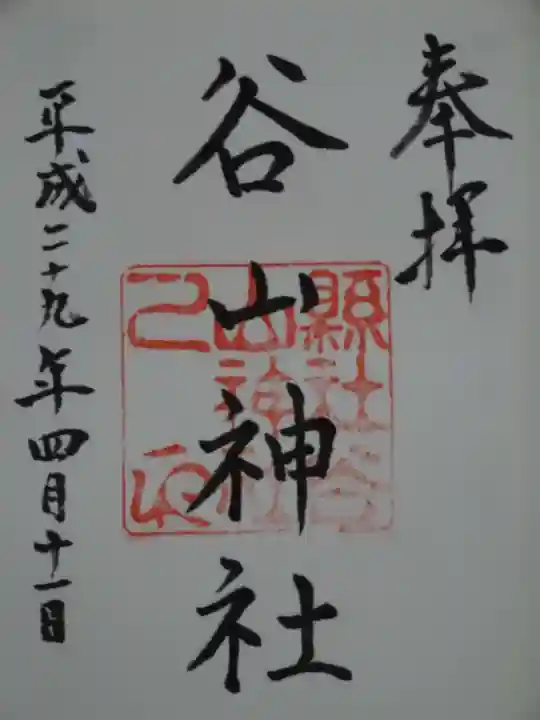 奉拝
谷山神社
縣社谷
山神社
之印
平成二十九年四月十一日